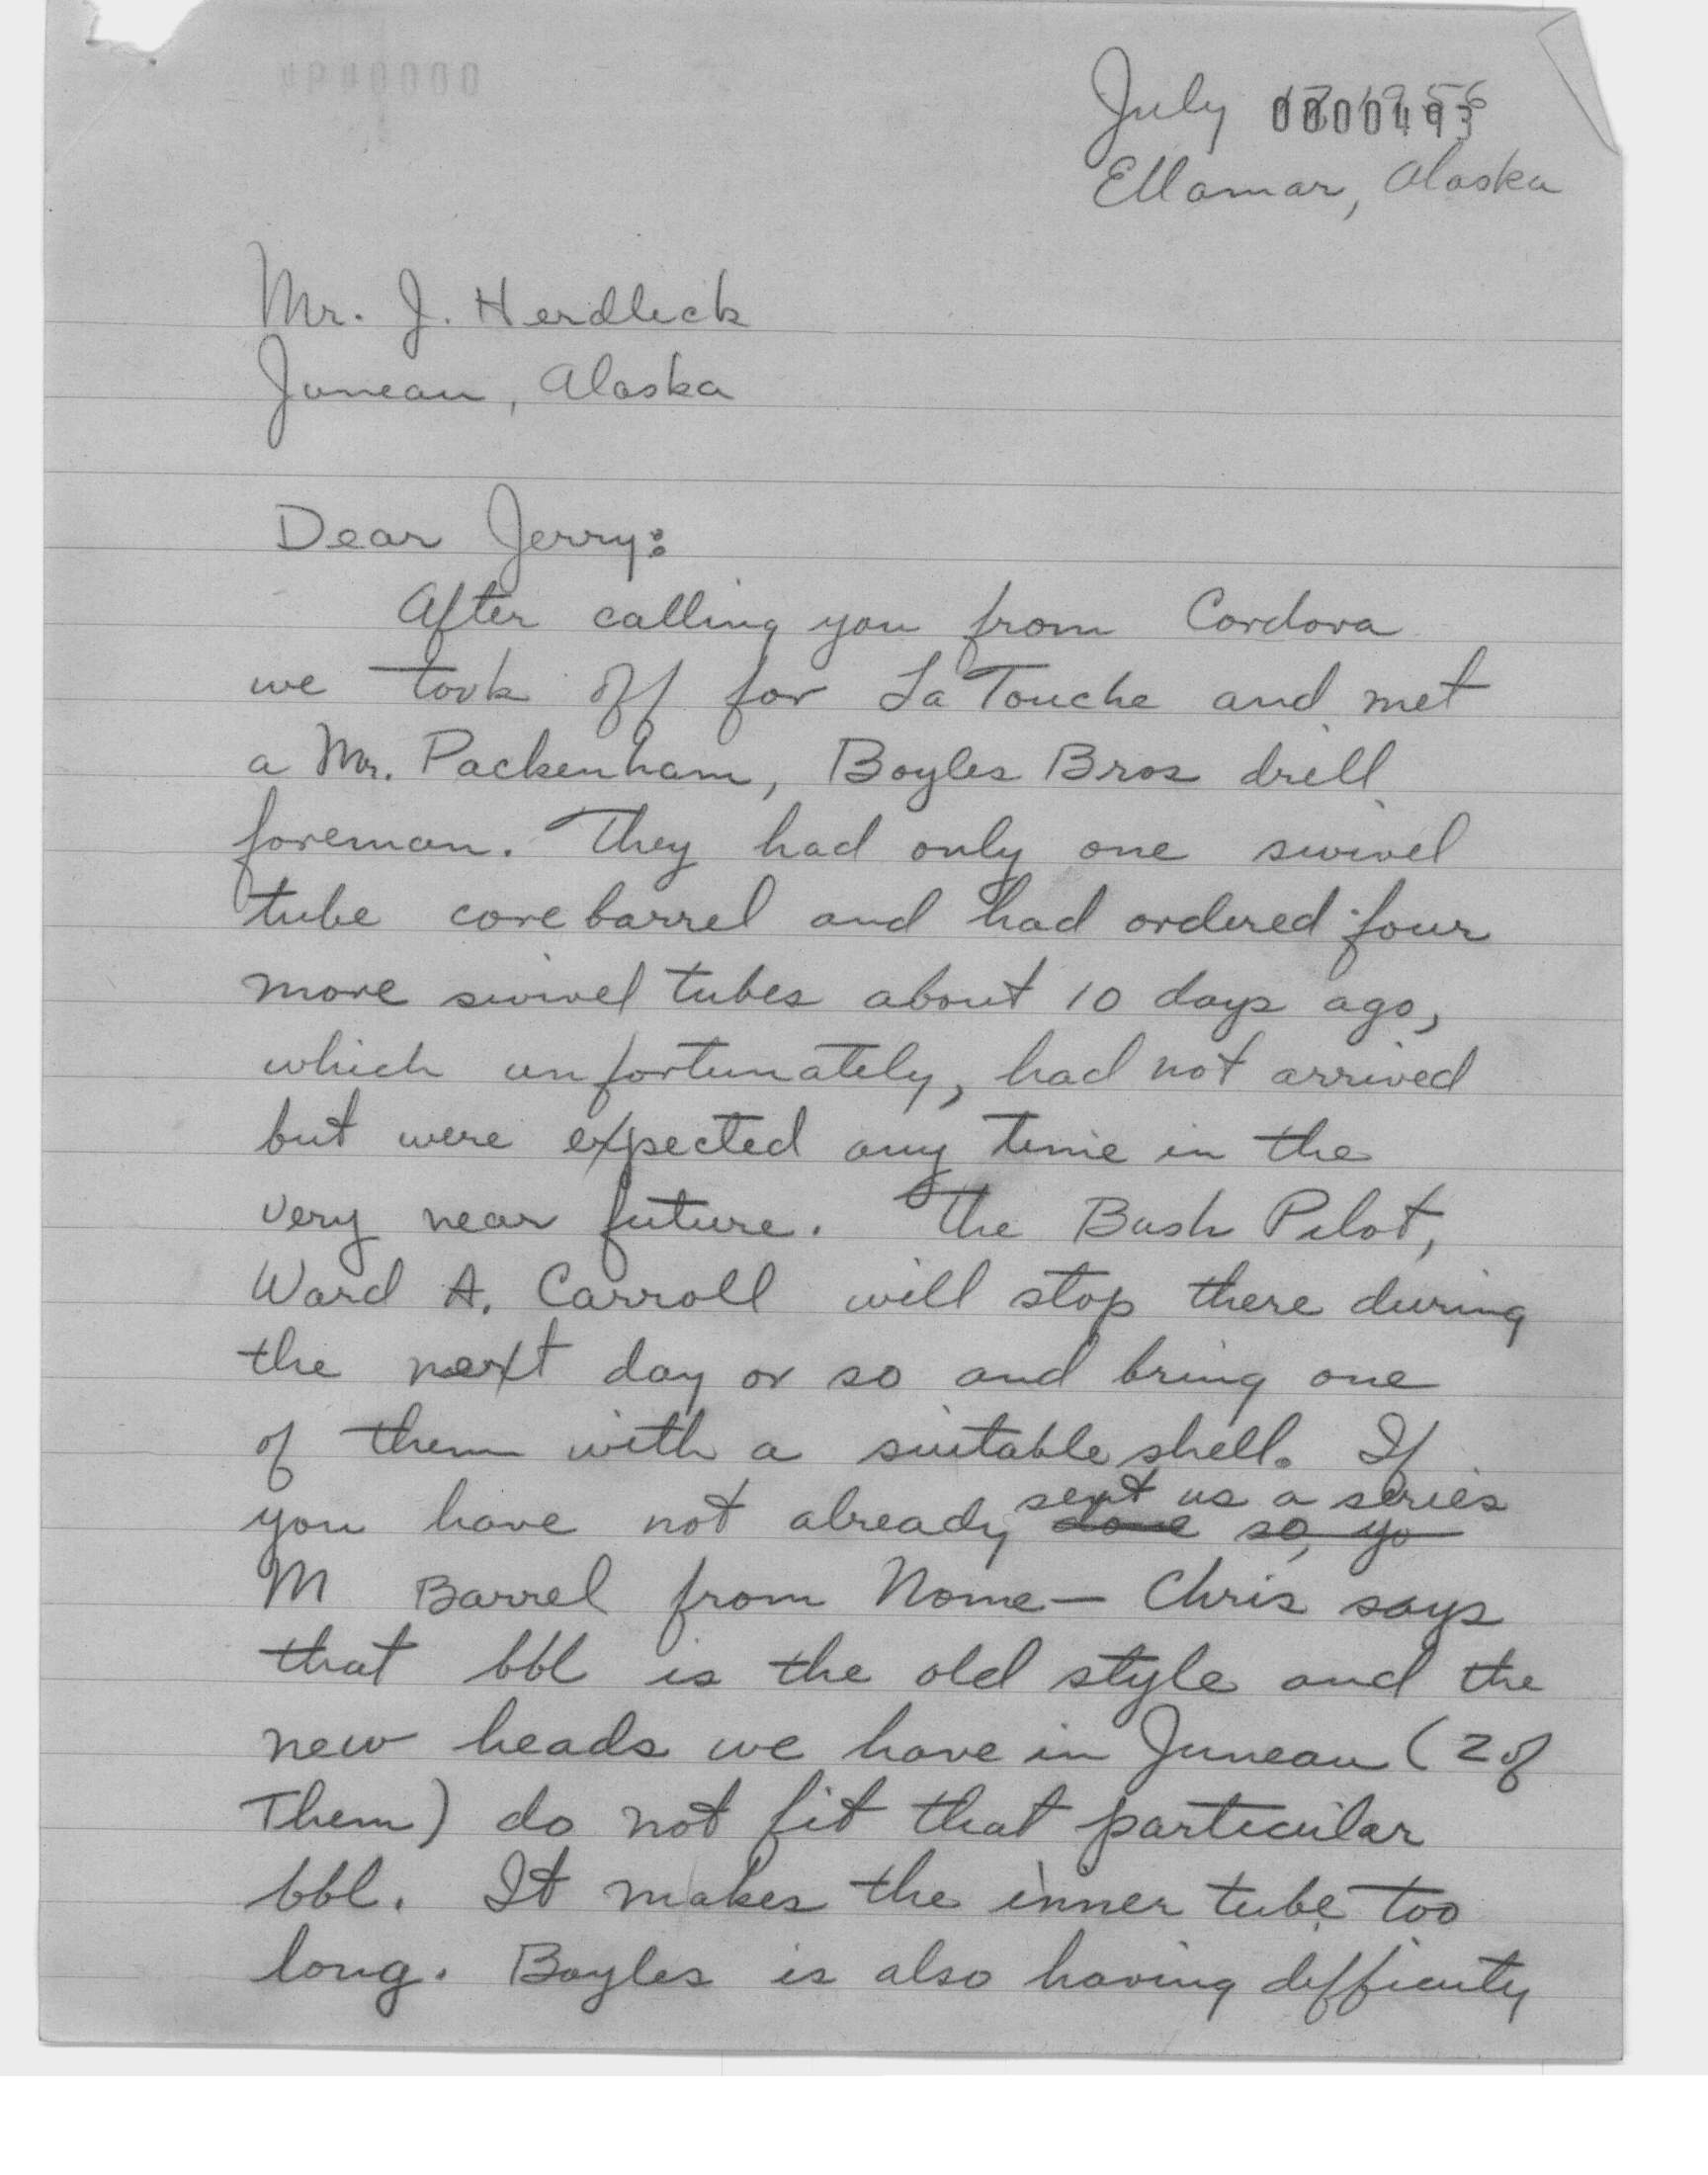 July 0000493
Ellamar, Alaska
Mr. J. Herdlick
Juneau, Alaska
Dear Jerry:
After calling you from Cordova
we took off for LaTouche and met
a Mr. Packenham, Boyles Bros drill
foreman. They had only one swivel
tube core barrel and had ordered four
more swivel tubes about 10 days ago,
which unfortunately, had not arrived
but were expected any time in the
very near future. The Bush Pilot,
Ward A. Carroll will stop there during
the next day or so and bring one
of them with a suitable shell. If
sent us a series
you have not already done so, yo
M Barrel from Nome — Chris says
that bbl is the old style and the
new heads we have in Juneau (2 of
Them) do not fit that particular
bbl. It makes the inner tube too
long. Boyles is also having difficuty